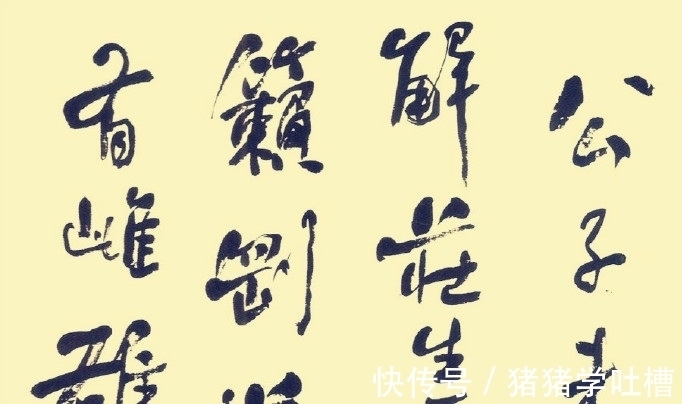 公子
解莊生
籟剛
有雌雄
快传号 / 猪猪学吐槽